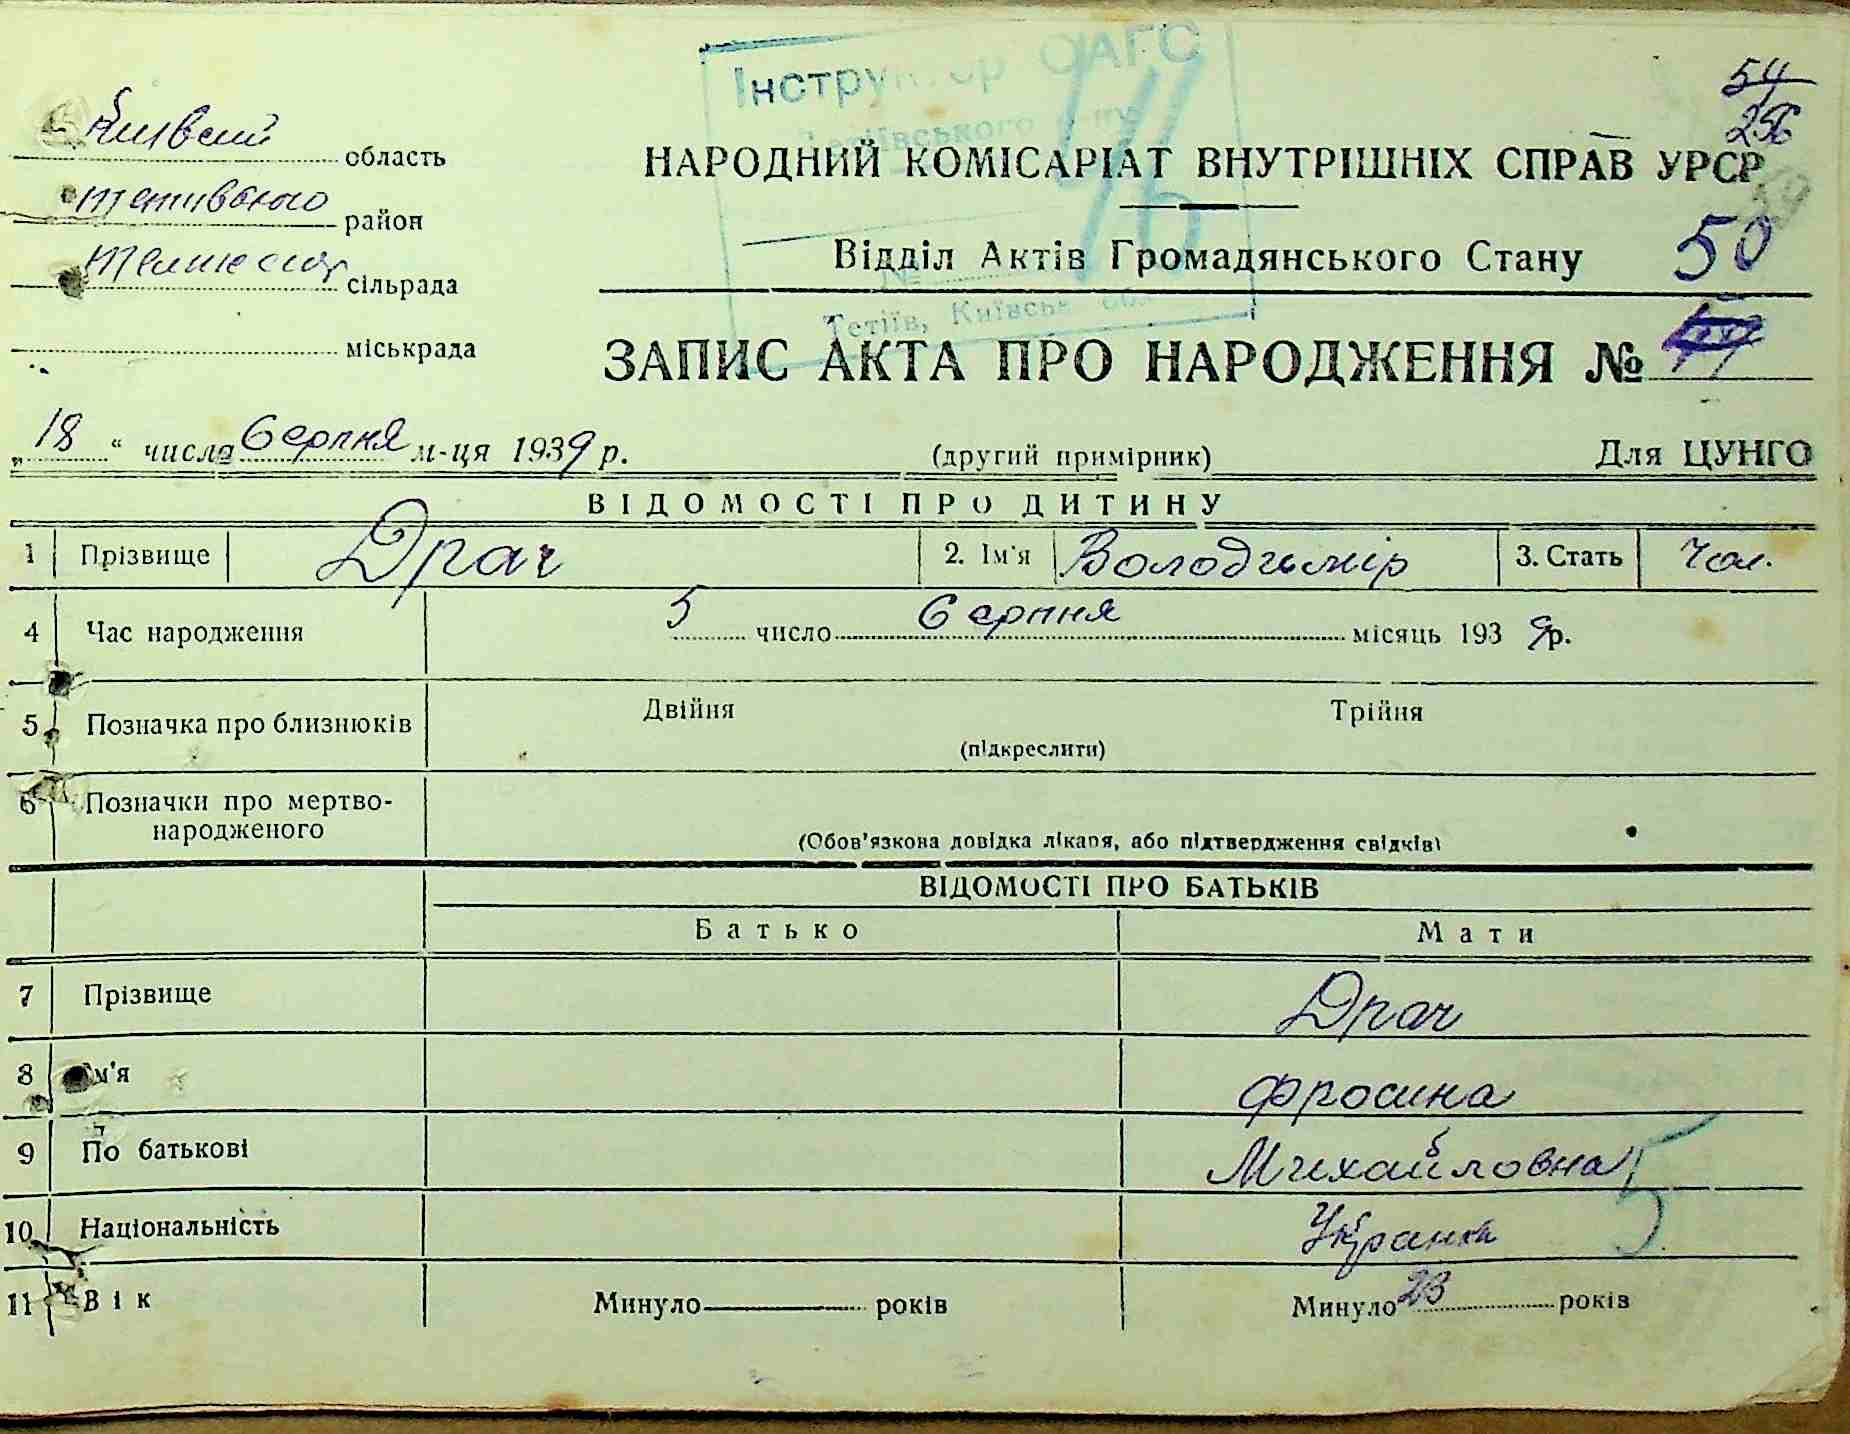 54
256
Київській область
Тетиївского район
сільрада
міськрада
Інструктор ОАГС
Тетіївського р-ну
№ 16
Тетіїв, Київськ. обл.
НАРОДНИЙ КОМІСАРІАТ ВНУТРІШНІХ СПРАВ УРСР
Відділ Актів Громадянського Стану 50
ЗАПИС АКТА ПРО НАРОДЖЕННЯ №
„18“ числа Серпня м-ця 1939 р. (другий примірник) Для ЦУНГО
ВІДОМОСТІ ПРО ДИТИНУ
1 Прізвище Драч 2. Ім'я Володимір 3. Стать Чол.
4 Час народження 5 число Серпня місяць 1939 р.
5 Позначка про близнюків Двійня Трійня
(підкреслити)
6 Позначки про мертво-
народженого
(Обов'язкова довідка лікаря, або підтвердження свідків)
ВІДОМОСТІ ПРО БАТЬКІВ
Батько Мати
7 Прізвище Драч
8 Ім'я Фросина
9 По батькові Михайловна
10 Національність Украинка
5
11 Вік Минуло років Минуло 23 років